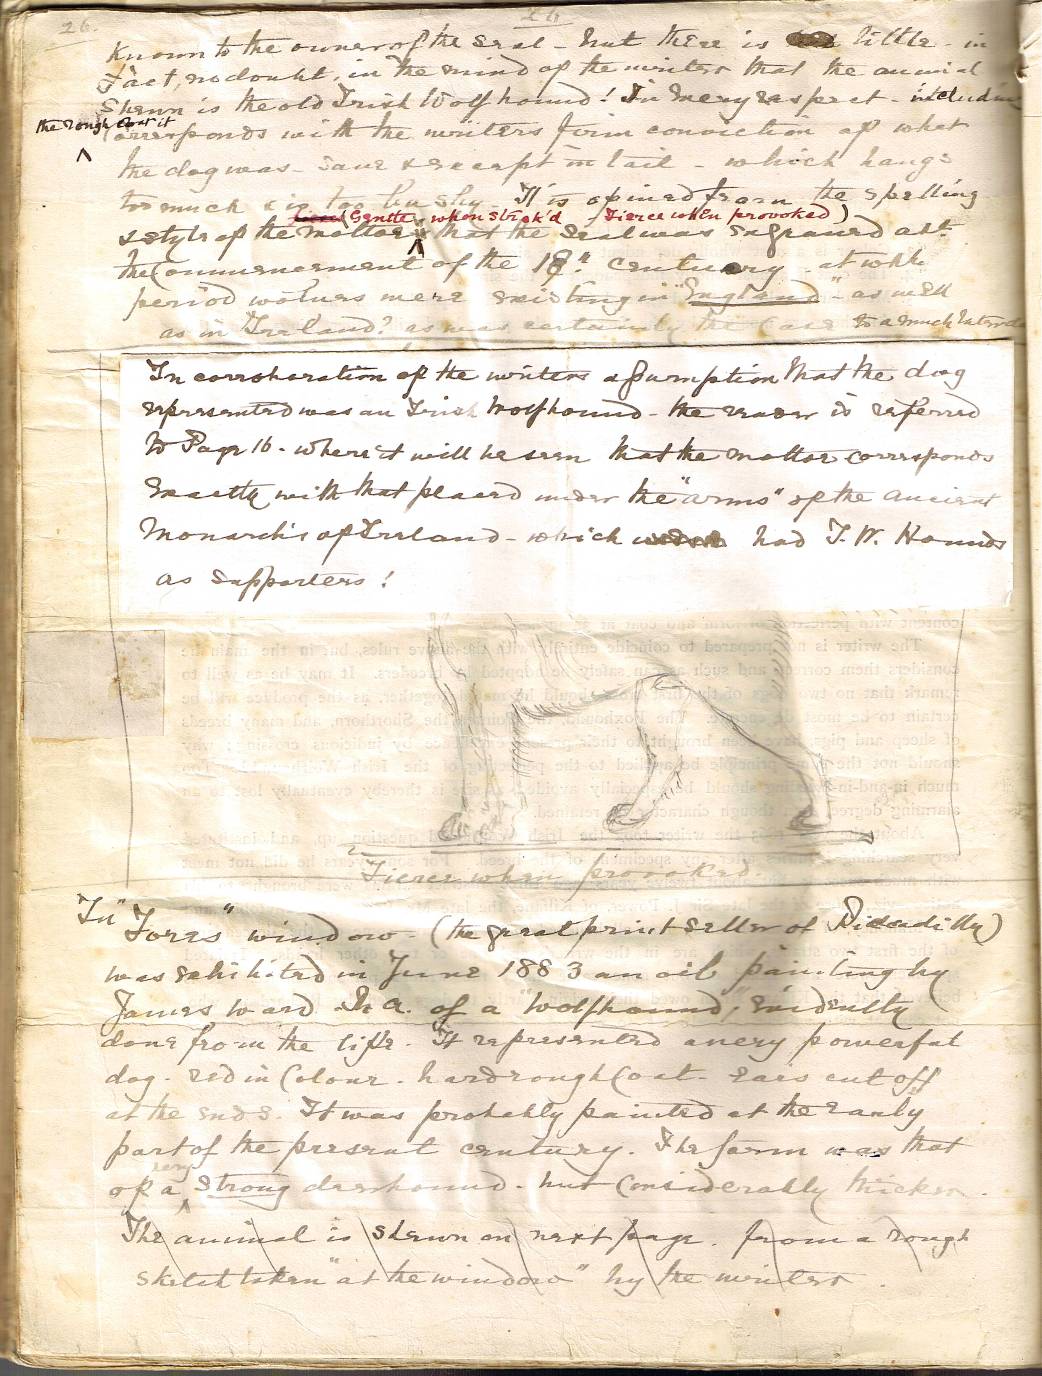 26.
26
Known to the owner of the seal - but there is little - in
fact, no doubt, in the mind of the writer that the animal
shewn is the old Irish Wolfhound! In every respect - including
the rough coat it
corresponds with the writers firm conviction of what
the dog was - save & except in tail - which hangs
too much & is too bushy. It is opined from the spelling
(Gentle when strok'd / Fierce when provoked)
& style of the motto that the seal was engraved abt.
the Commencement of the 18th. century at whh.
period wolves were existing in "England" - as well
as in Ireland? as was certainly the case to a much later
In corroboration of the writers assumption that the dog
represented was an Irish Wolfhound - the reader is referred
to Page 16 - where it will be seen that the motto corresponds
exactly with that placed under the "arms" of the ancient
Monarchs of Ireland - which had I. W. Hounds
as supporters!
content with perfection of form and coat
The writer is not prepared to coincide entirely with the above rules, but in the main
considers them correct, and such as can safely be adopted by breeders. It may be as well to
remark that no two dogs of should be mated together, as the produce will be
certain to be most The Foxhound, the Pointer, the Shorthorn, and many breeds
of sheep and pigs, have been brought to their present excellence by judicious crossing; why
should not the same principle be applied to the perfecting of the Irish Wolfhound?
much in-and-in-breeding should be especially avoided, as size is thereby eventually lost to an
alarming degree, though character retained.
"Fierce when provoked.
In "Fores" window - (the great print seller of Piccadilly)
was exhibited in June 1883 an oil painting by
James Ward R. A. of a "Wolfhound", evidently
done from the life. It represented a very powerful
dog - red in Colour - hard rough Coat - ears cut off
at the ends. It was probably painted at the early
part of the present century. The form was that
very
of a strong deerhound - but Considerably thicker.
The animal is shewn on next page. from a rough
sketch taken "at the window" by the writer.